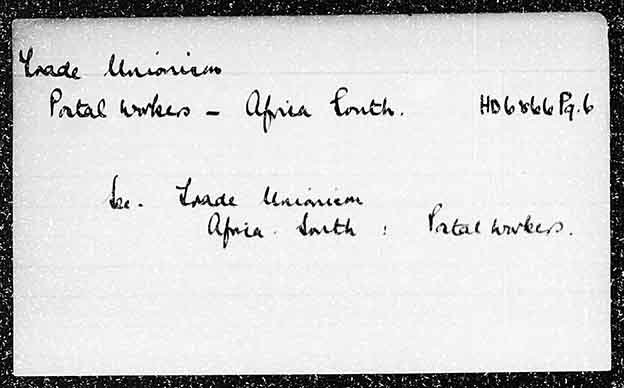 Trade Unionism
Postal workers - Africa South. HD6866Pq.6
See. Trade Unionism
Africa. South : Postal workers.